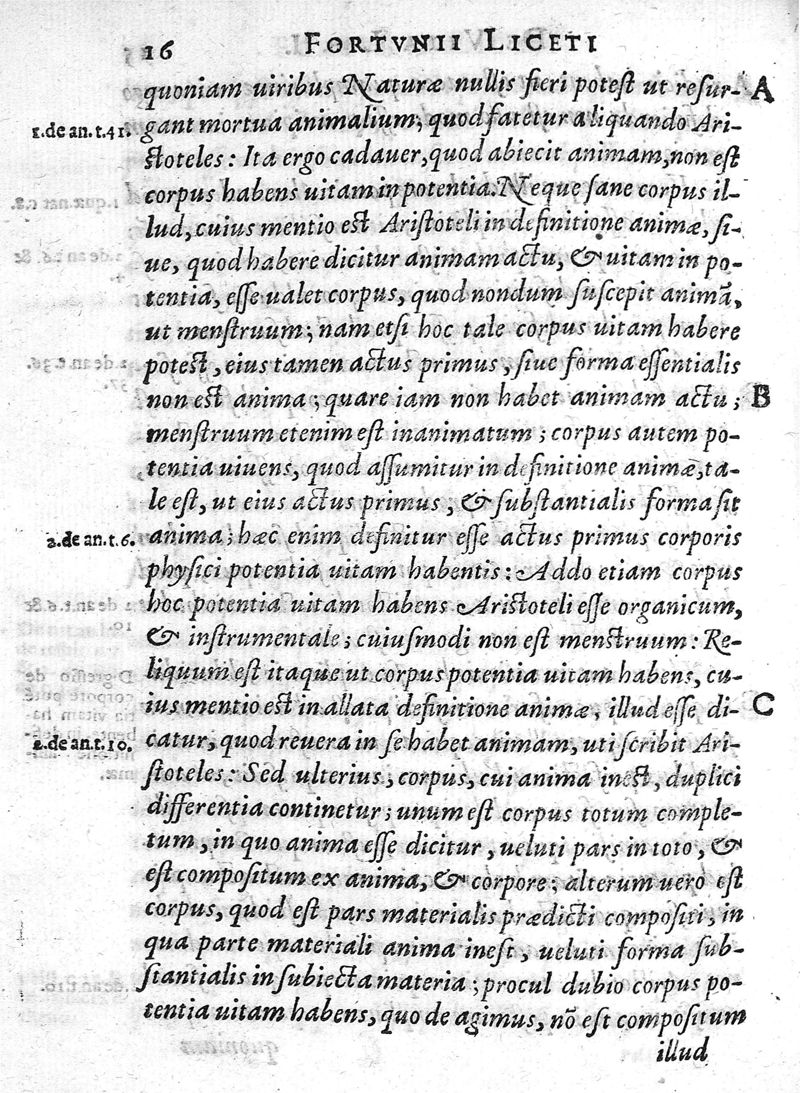 16 FORTVNII LICETI
quoniam uiribus Naturæ nullis fieri potest ut resur- A
1.de an.t.41. gant mortua animalium, quod fatetur aliquando Ari-
stoteles: Ita ergo cadauer, quod abiecit animam, non est
corpus habens uitam in potentia. Neque sane corpus il-
lud, cuius mentio est Aristoteli in definitione animæ, si-
ue, quod habere dicitur animam actu, & uitam in po-
tentia, esse ualet corpus, quod nondum suscepit animã,
ut menstruum; nam etsi hoc tale corpus uitam habere
potest, eius tamen actus primus, siue forma essentialis
non est anima; quare iam non habet animam actu; B
menstruum etenim est inanimatum; corpus autem po-
tentia uiuens, quod assumitur in definitione animæ, ta-
le est, ut eius actus primus, & substantialis forma sit
2.de an.t.6. anima; hæc enim definitur esse actus primus corporis
physici potentia uitam habentis: Addo etiam corpus
hoc potentia uitam habens Aristoteli esse organicum,
& instrumentale; cuiusmodi non est menstruum: Re-
liquum est itaque ut corpus potentia uitam habens, cu-
ius mentio est in allata definitione animæ, illud esse di- C
2.de an.t.10. catur, quod reuera in se habet animam, uti scribit Ari-
stoteles: Sed ulterius, corpus, cui anima inest, duplici
differentia continetur; unum est corpus totum comple-
tum, in quo anima esse dicitur, ueluti pars in toto, &
est compositum ex anima, & corpore; alterum uero est
corpus, quod est pars materialis prædicti compositi, in
qua parte materiali anima inest, ueluti forma sub-
stantialis in subiecta materia; procul dubio corpus po-
tentia uitam habens, quo de agimus, nõ est compositum
illud